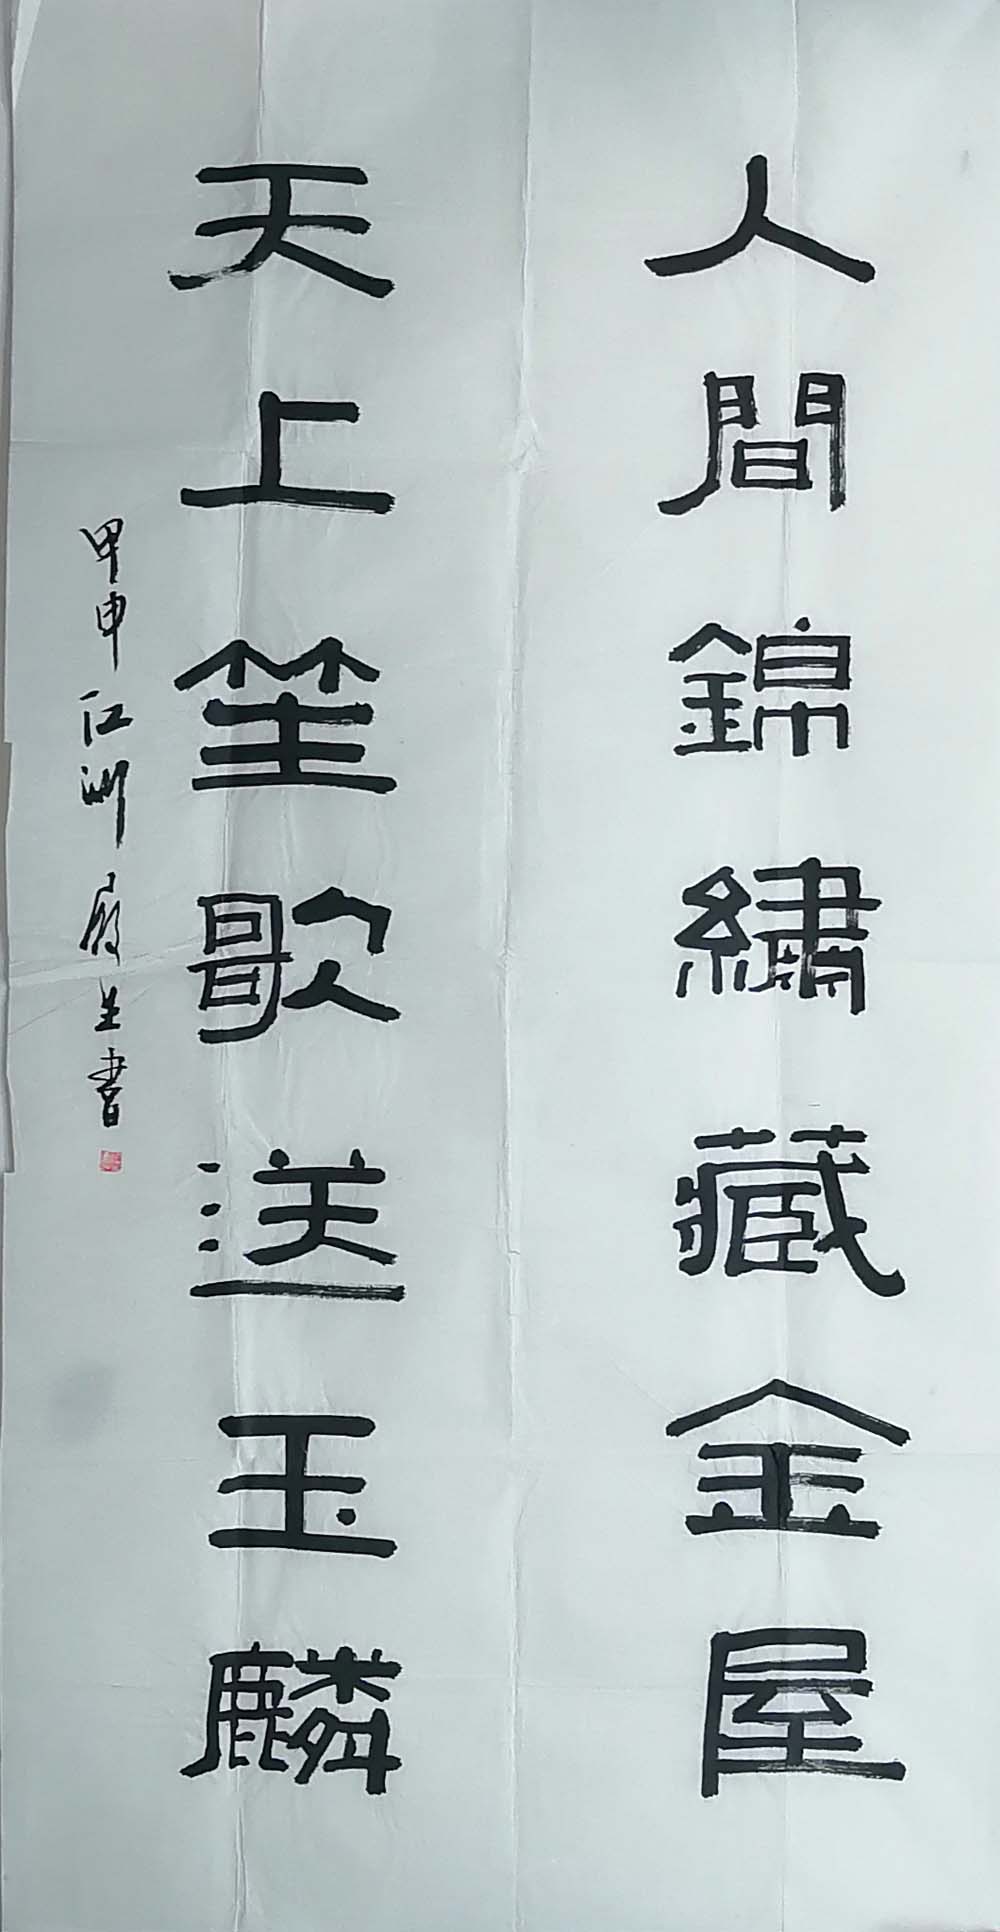 人間錦繡藏金屋
天上笙歌送玉麟
甲申江洲殿生書